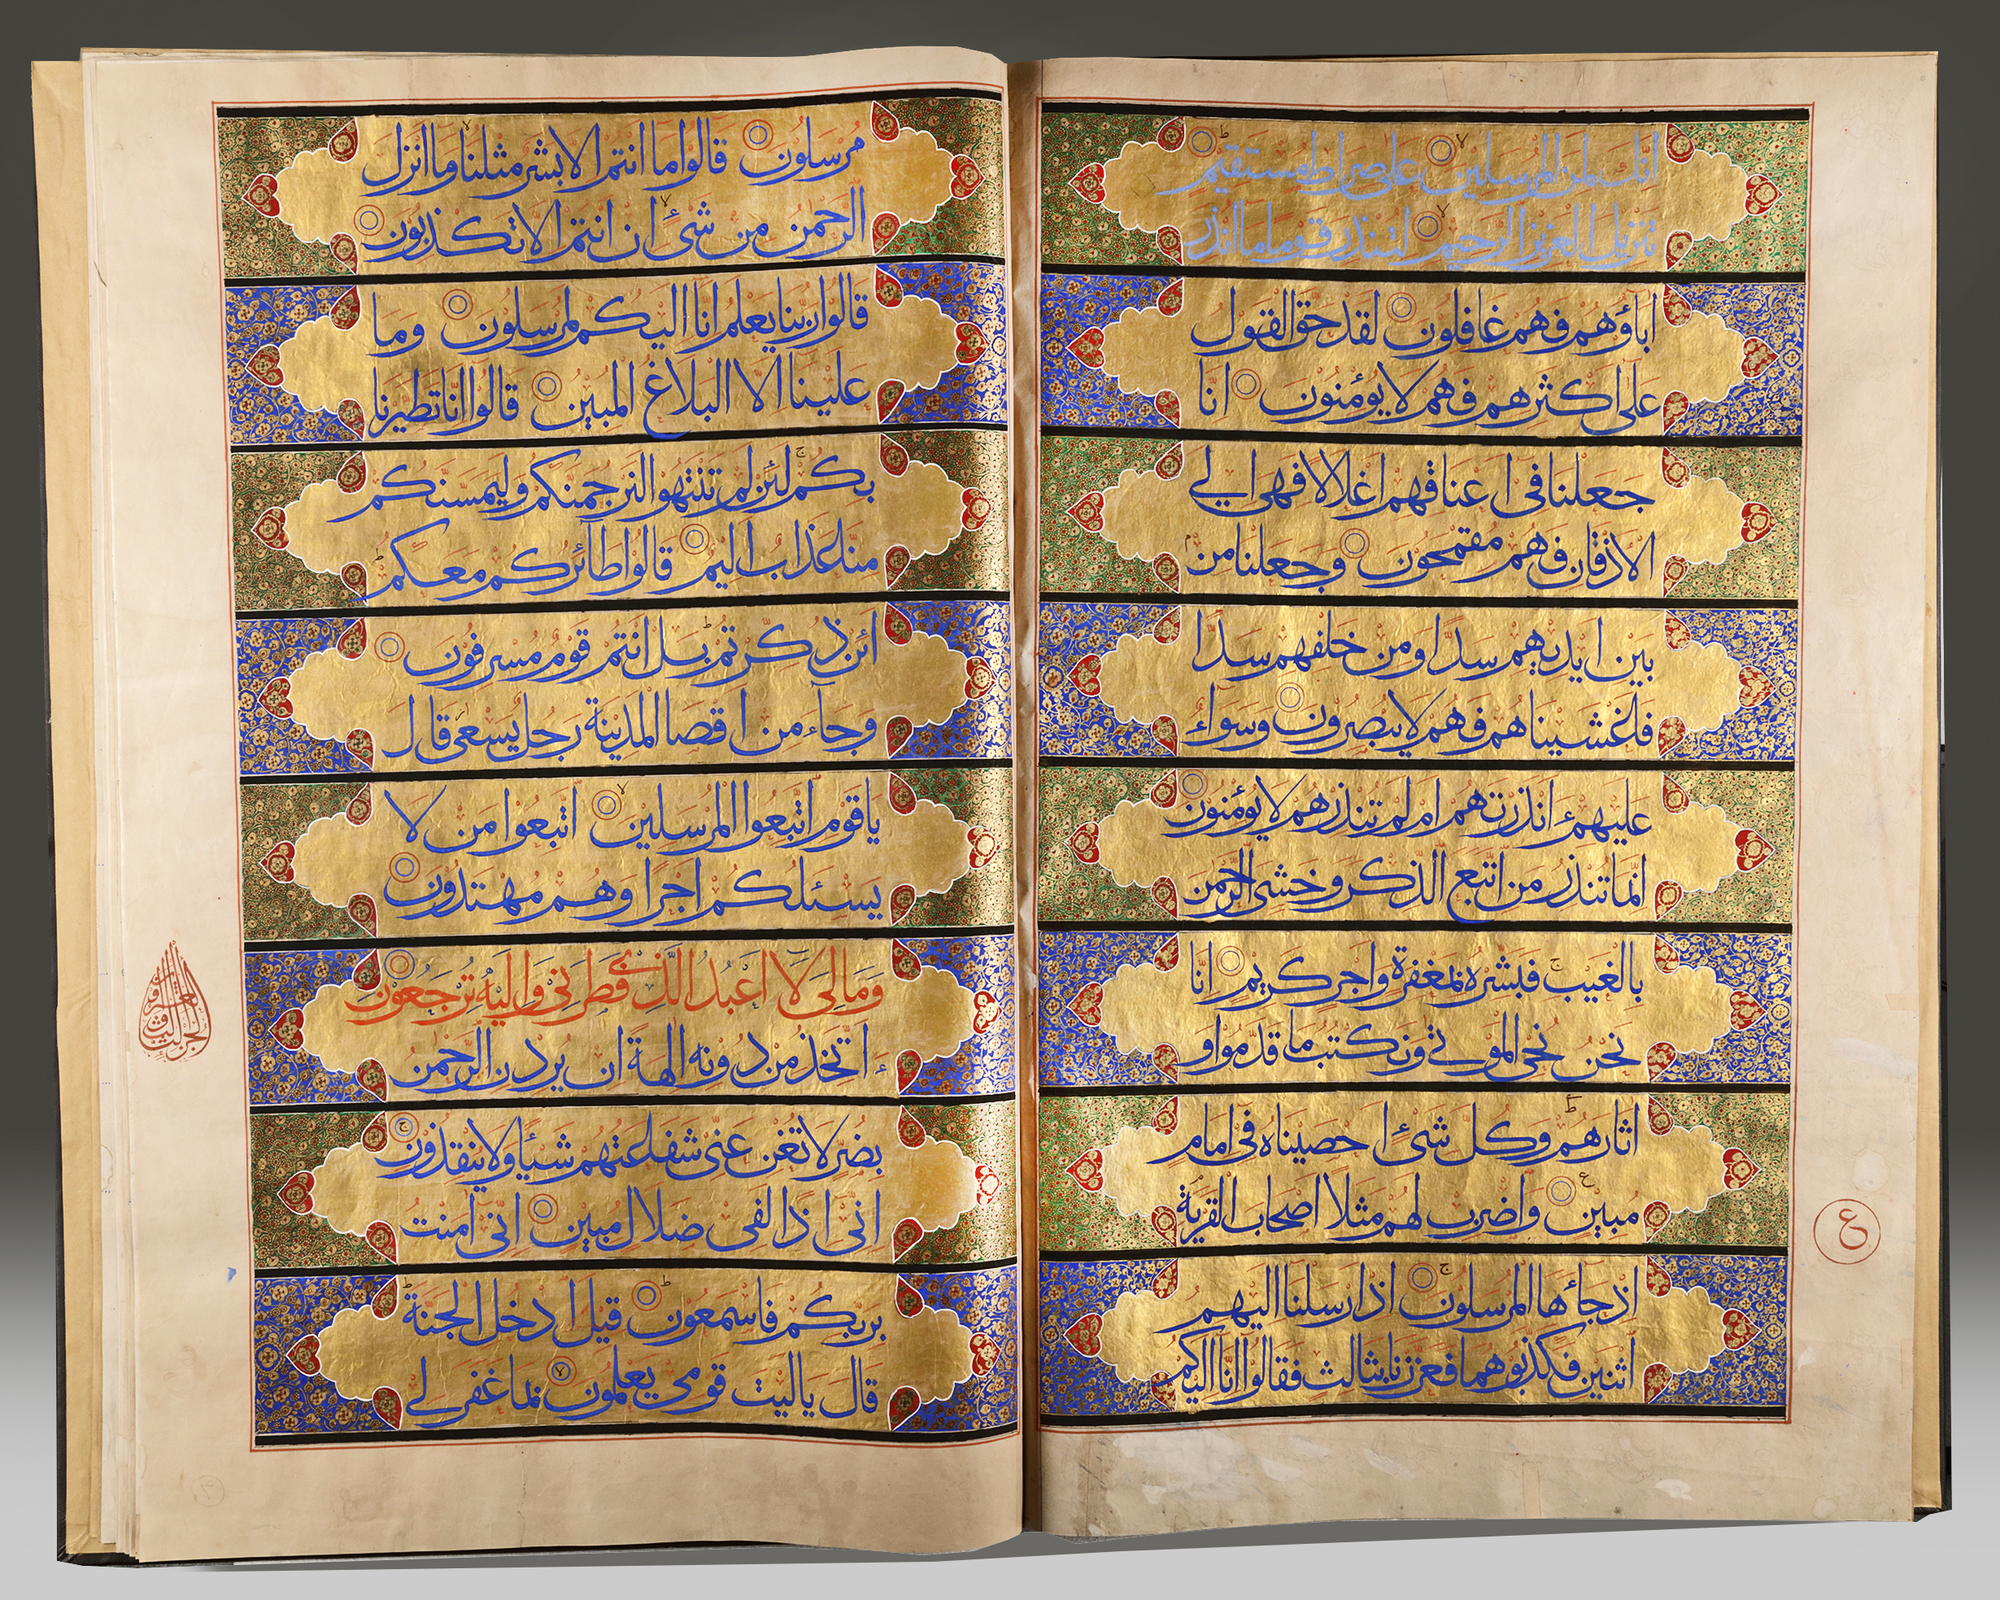 انّك لمن المرسلين على صراط مستقيم
تنزيل العزيز الرحيم لتنذر قوما ما انذر
اباؤهم فهم غافلون لقد حق القول
على اكثرهم فهم لا يؤمنون انا
جعلنا في اعناقهم اغلالا فهي الي
الاذقان فهم مقمحون وجعلنا من
بين ايديهم سدّا ومن خلفهم سدّا
فاغشيناهم فهم لا يبصرون وسواء
عليهم ءانذرتهم ام لم تنذرهم لا يؤمنون
انما تنذر من اتبع الذكر وخشي الرحمن
بالغيب فبشره بمغفرة واجر كريم انّا
نحن نحي الموتي ونكتب ما قدموا و
اثارهم وكل شئ احصيناه في امام
مبين واضرب لهم مثلا اصحاب القرية
اذ جائها المرسلون اذ ارسلنا اليهم
اثنين فكذبوهما فعززنا بثالث فقالوا انّا اليكم
ع
مرسلون قالوا ما انتم الا بشر مثلنا وما انزل
الرحمن من شئ ان انتم الا تكذبون
قالوا ربنا يعلم انّا اليكم لمرسلون وما
علينا الّا البلاغ المبين قالوا انّا تطيرنا
بكم لئن لم تنتهوا لنرجمنّكم وليمسّنكم
منّا عذاب اليم قالوا طائركم معكم
ائن ذكّرتم بل انتم قوم مسرفون
وجاء من اقصا المدينة رجل يسعى قال
ياقوم اتّبعوا المرسلين اتبعوا من لا
يسئلكم اجرا وهم مهتدون
وَمَالِيَ لَا اَعْبُدُ الَّذِي فَطَرَنِي وَاِلَيْهِ تُرْجَعُونَ
ءاتخذ من دونه الهة ان يردن الرحمن
بضرّ لا تغن عنّي شفاعتهم شيئا ولا ينقذون
انّي اذا لفي ضلال مبين انّي امنت
بربّكم فاسمعون قيل ادخل الجنّة
قال ياليت قومي يعلمون بما غفر لي
الجزء الثالث والعشرون